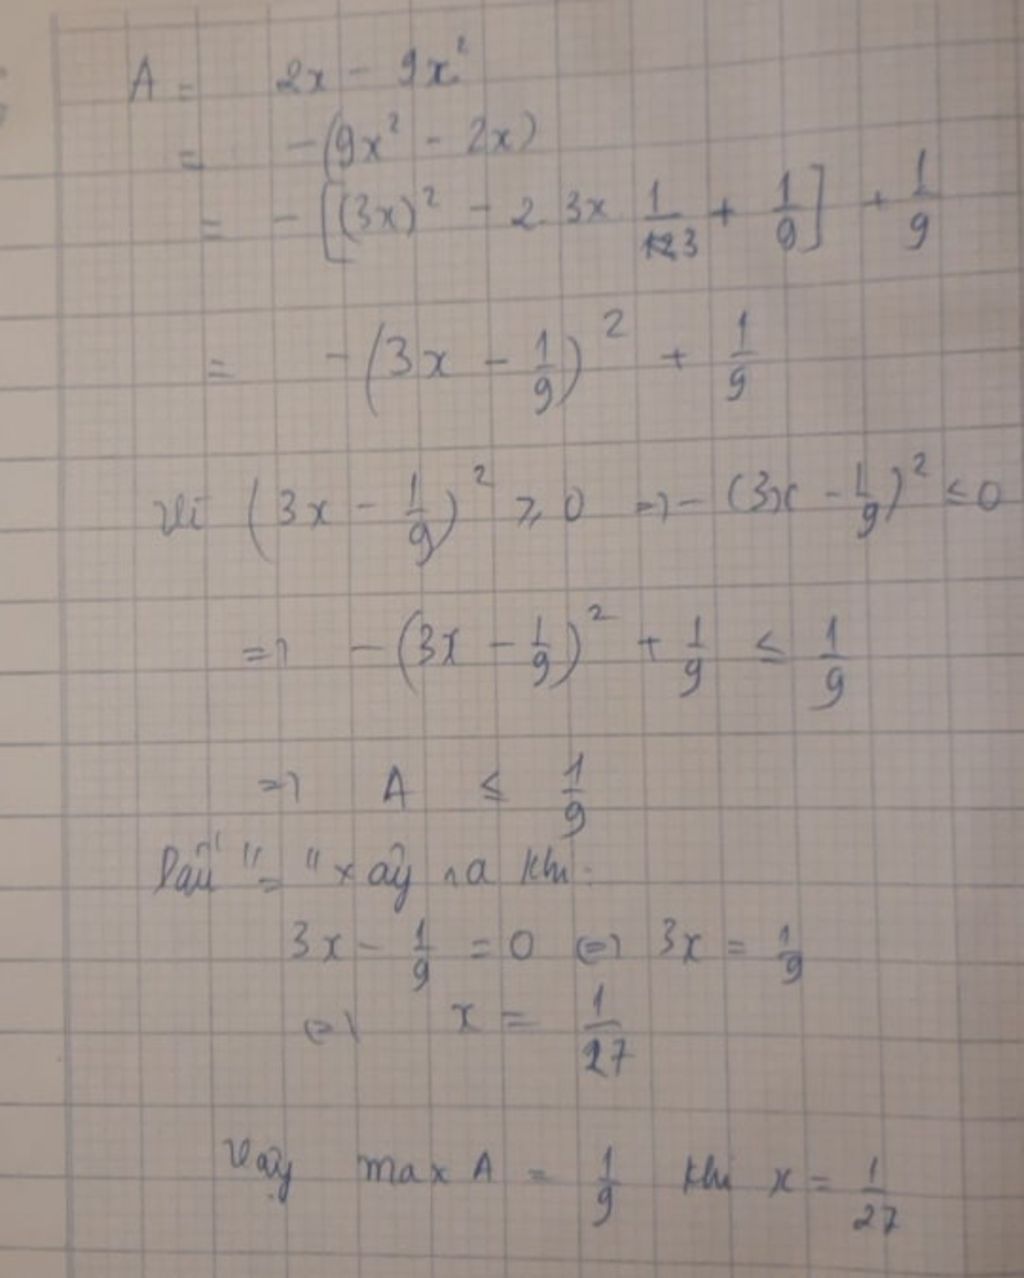 A = 2x - 9x²
= -(9x² - 2x)
= -[(3x)² - 2 3x 1/3 + 1/9] + 1/9
= -(3x - 1/9)² + 1/9
Vì (3x - 1/9)² ≥ 0 => -(3x - 1/9)² ≤ 0
=> -(3x - 1/9)² + 1/9 ≤ 1/9
=> A ≤ 1/9
Dấu "=" xảy ra khi:
3x - 1/9 = 0 <=> 3x = 1/9
<=> x = 1/27
Vậy max A = 1/9 khi x = 1/27